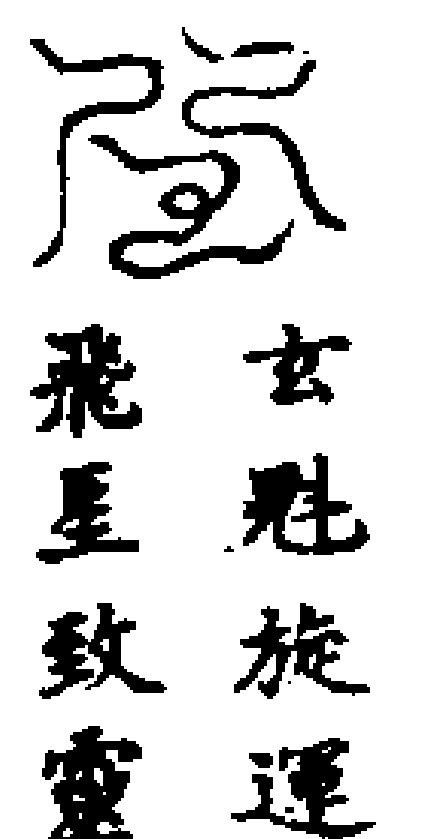 玄魁旋運
飛星致靈